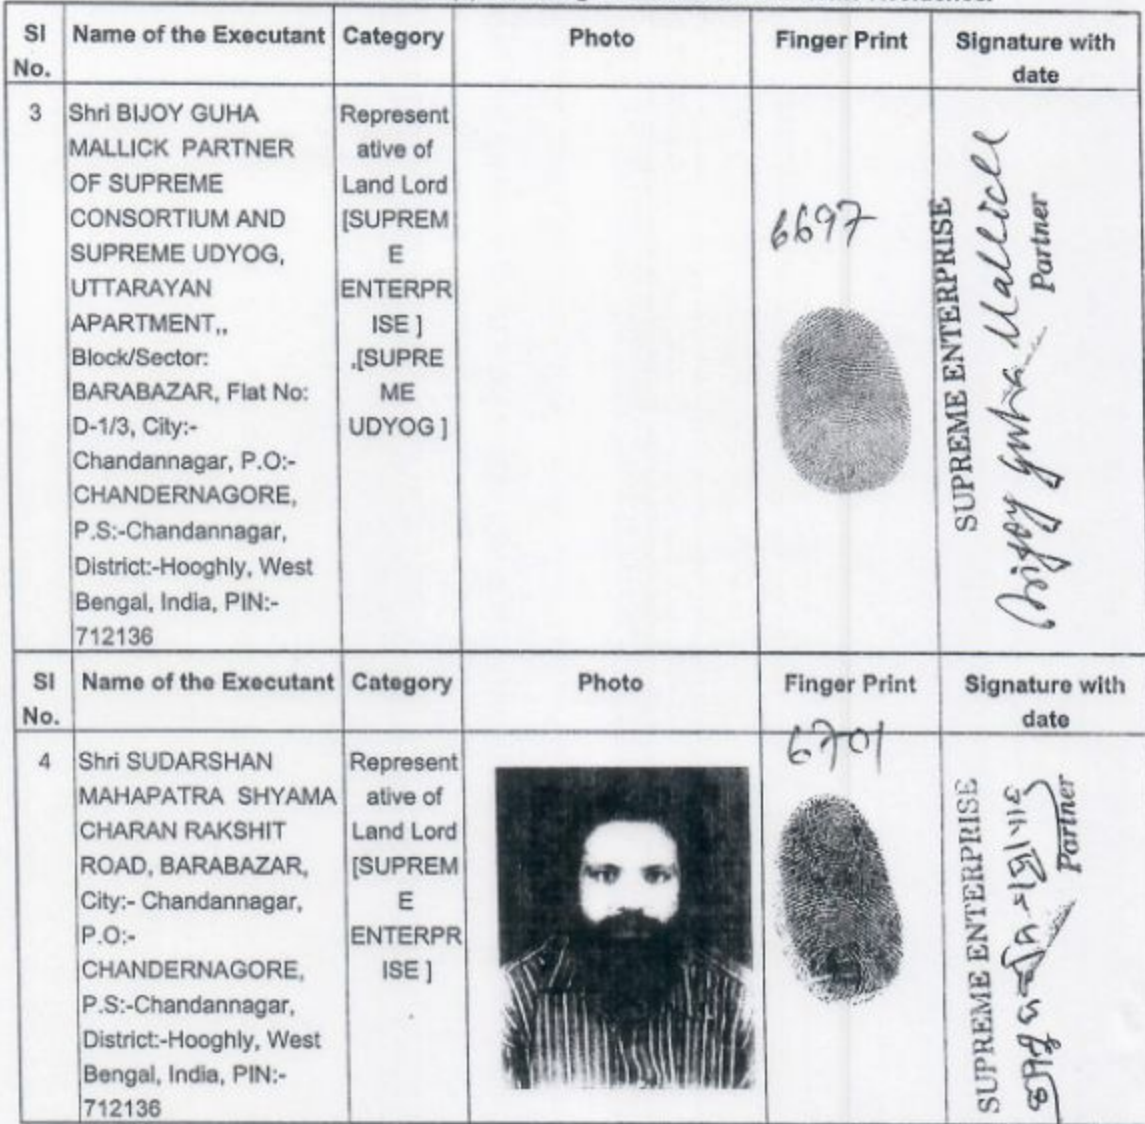 Sl No. Name of the Executant Category Photo Finger Print Signature with date
3
Shri BIJOY GUHA
MALLICK PARTNER
OF SUPREME
CONSORTIUM AND
SUPREME UDYOG,
UTTARAYAN
APARTMENT,,
Block/Sector:
BARABAZAR, Flat No:
D-1/3, City:-
Chandannagar, P.O:-
CHANDERNAGORE,
P.S:-Chandannagar,
District:-Hooghly, West
Bengal, India, PIN:-
712136
Represent
ative of
Land Lord
[SUPREM
E
ENTERPR
ISE ]
,[SUPRE
ME
UDYOG ]
6697
SUPREME ENTERPRISE
Bijoy Guha Mallick
Partner
Sl No. Name of the Executant Category Photo Finger Print Signature with date
4
Shri SUDARSHAN
MAHAPATRA SHYAMA
CHARAN RAKSHIT
ROAD, BARABAZAR,
City:- Chandannagar,
P.O:-
CHANDERNAGORE,
P.S:-Chandannagar,
District:-Hooghly, West
Bengal, India, PIN:-
712136
Represent
ative of
Land Lord
[SUPREM
E
ENTERPR
ISE ]
6701
SUPREME ENTERPRISE
Partner